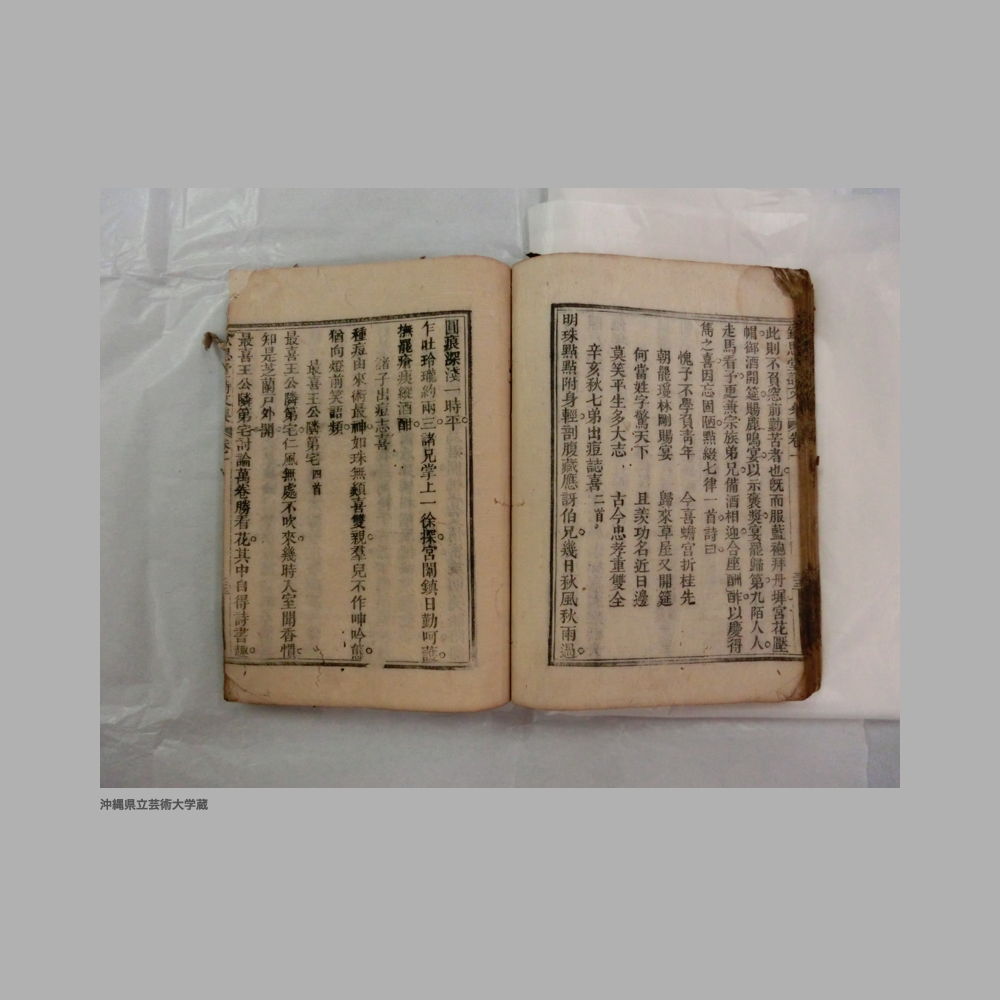 此則不負窓前勤苦者也旣而服藍袍拜丹墀宮花壓
帽御酒開筵賜鹿鳴宴以示褒奬宴罷歸第九陌人人
走馬看子更兼宗族弟兄備酒相迎合座酬酢以慶得
雋之喜因忘固陋點綴七律一首詩曰
愧子不學負靑年 今喜蟾宮折桂先
朝罷瓊林剛賜宴 歸來草屋又開筵
何當姓字驚天下 且羨功名近日邊
莫笑平生多大志 古今忠孝重雙全
辛亥秋七弟出痘誌喜二首
明珠點點附身輕剖腹藏應訝伯兄幾日秋風秋雨過
圓痕深淺一時平
乍吐玲瓏約兩三諸兄掌上一徐探宮閙鎮日勤呵護
撫罷瘡痍縱酒酣
諸子出痘志喜
種痘由來術最神如珠無纇喜雙親羣兒不作呻吟態
猶向燈前笑語頻
最喜王公隣第宅四首
最喜王公隣第宅仁風無處不吹來幾時入室聞香慣
知是芝蘭戶外開
最喜王公隣第宅討論萬卷勝看花其中自得詩書趣
沖縄県立芸術大学蔵